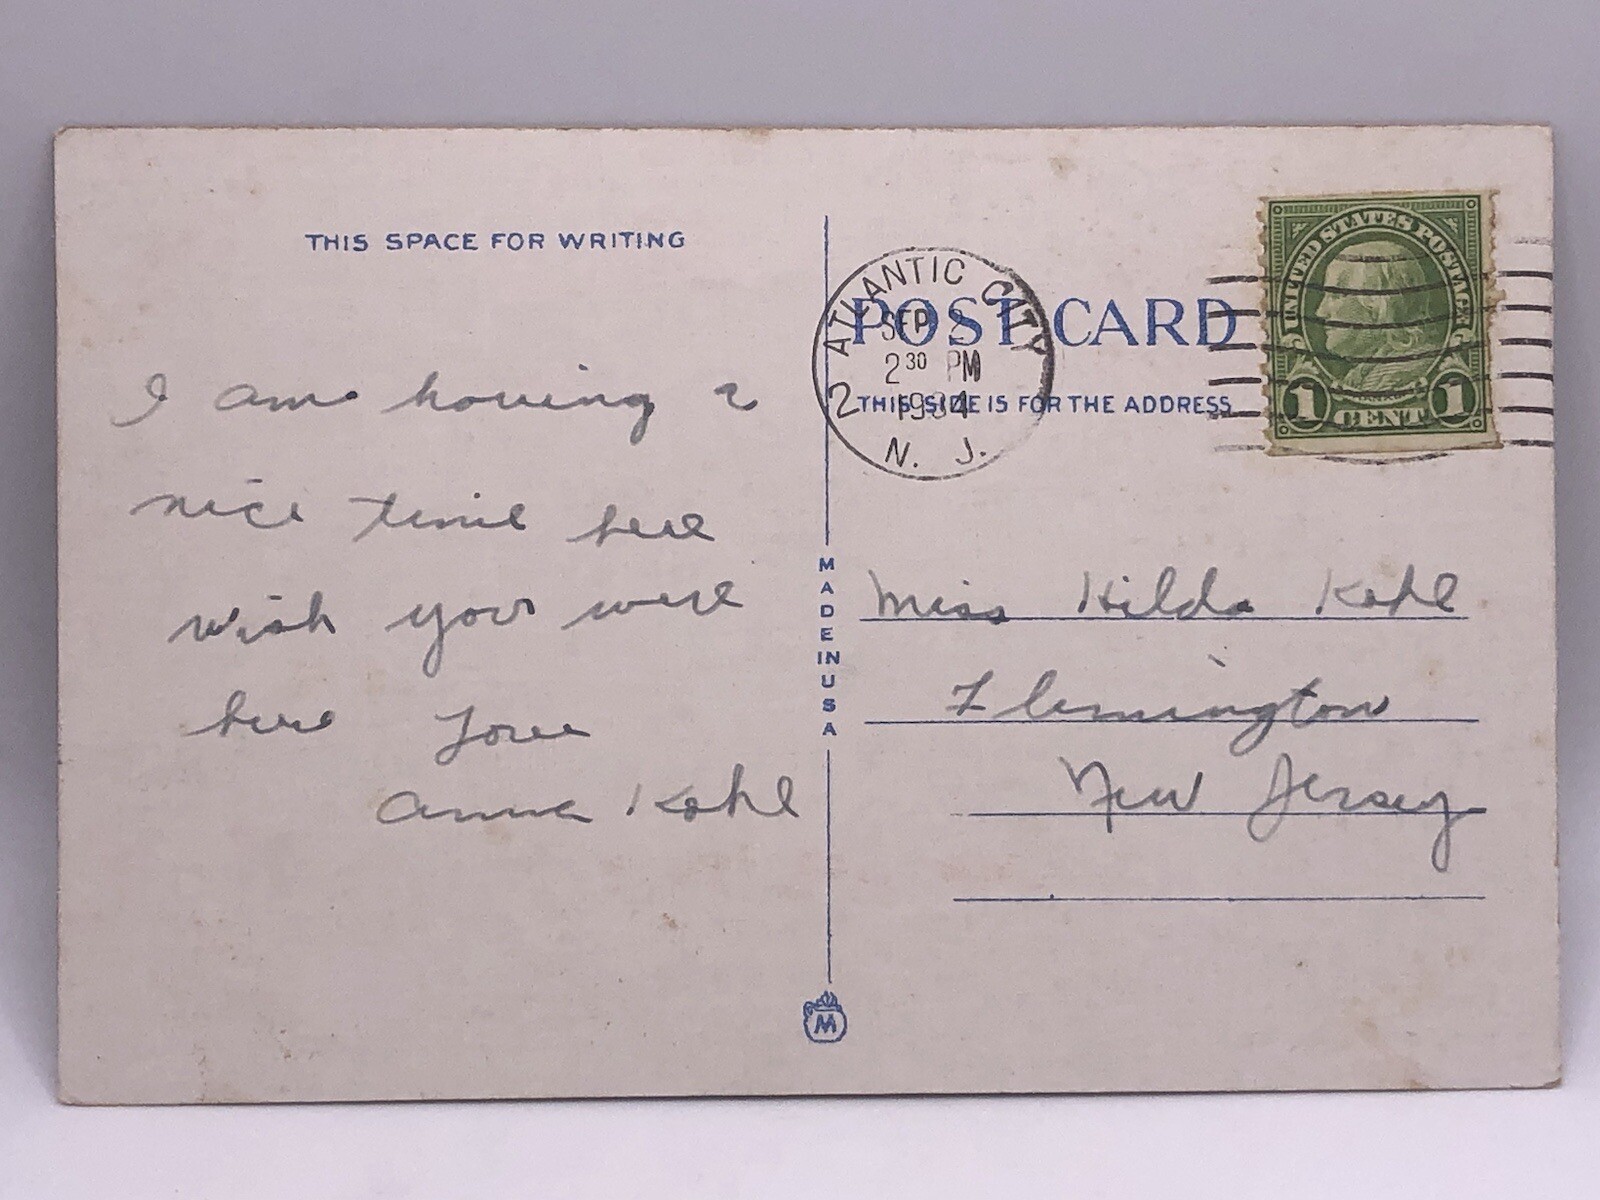 THIS SPACE FOR WRITING
I am having a
nice time here
wish you were
here Love
Anna Kohl
MADE IN USA
M
ATLANTIC CITY
SEP 2
2 30 PM
1934
2
N. J.
POST CARD
THIS SIDE IS FOR THE ADDRESS
UNITED STATES POSTAGE
FRANKLIN
1 CENT 1
Miss Hilda Kohl
Flemington
New Jersey